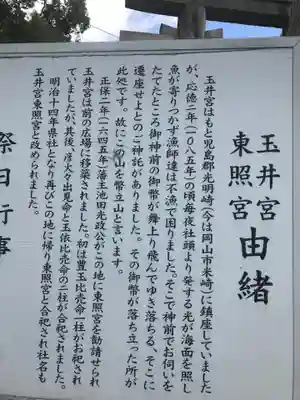 玉井宮
東照宮
由緒
玉井宮はもと児島郡光明崎(今は岡山市米崎)に鎮座していました
が、応徳二年(一〇八五年)の頃毎夜社頭より発する光が海面を照し
魚が寄りつかず漁師達は不漁で困りました。そこで神前でお伺いを
たてたところ御神前の御幣が舞上り飛んでゆき落ちる、そこに
遷座せよとのご神託がありました。その御幣が落ち立った所が
此処です。故にこの山を幣立山と言います。
正保二年(一六四五年)藩主池田光政公がこの地に東照宮を勧請せられ
玉井宮は前の広場に移築されました。初は豊玉比売命一柱がお祀され
ていましたが、其後、彦火々出見命と玉依比売命の二柱が合祀されました。
明治十四年県社となり再びこの地に帰り東照宮と合祀され社名も
玉井宮東照宮と改められました。
祭日行事